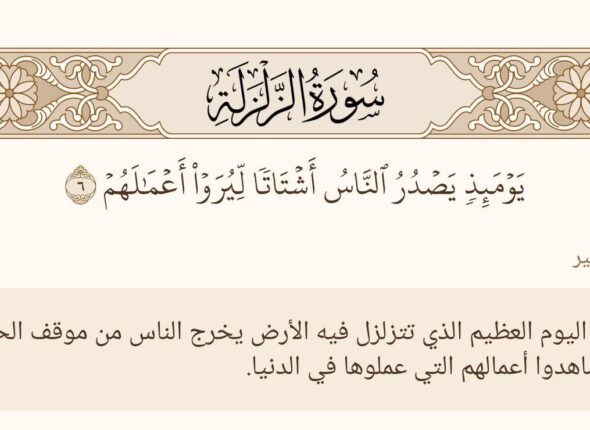 سُورَةُ الزَّلْزَلَةِ
يَوۡمَئِذٖ يَصۡدُرُ ٱلنَّاسُ أَشۡتَاتٗا لِّيُرَوۡاْ أَعۡمَٰلَهُمۡ ٦
اليوم العظيم الذي تتزلزل فيه الأرض يخرج الناس من موقف
أعمالهم التي عملوها في الدنيا.